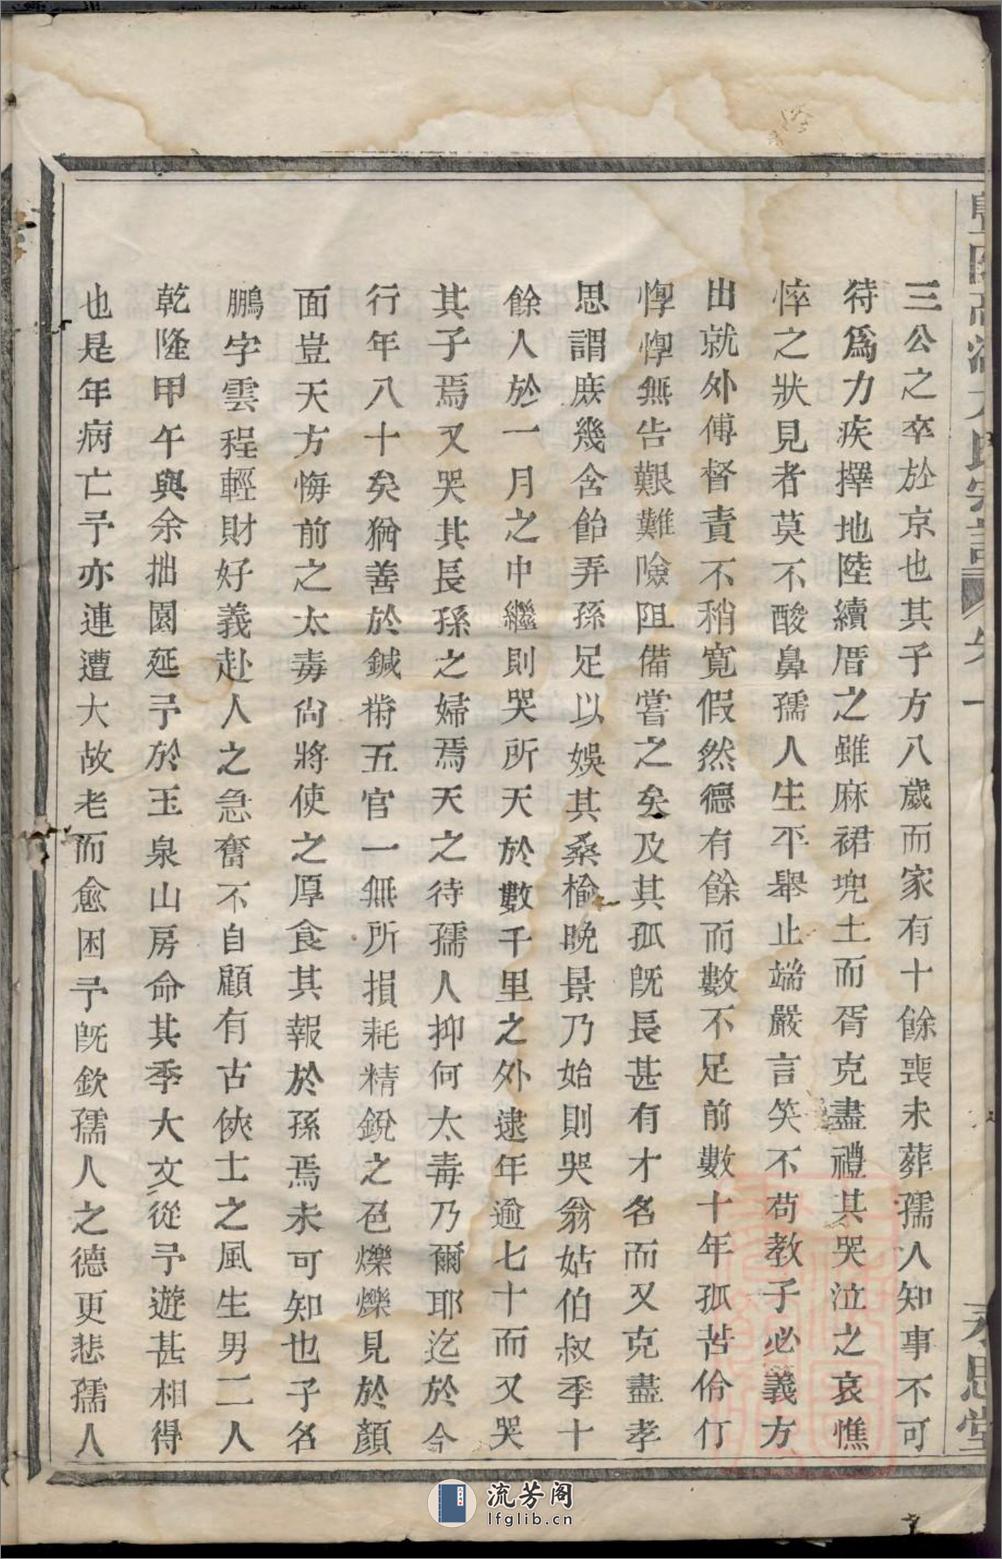 三公之卒於京也其子方八歲而家有十餘喪未葬孺人知事不可
待爲力疾擇地陸續厝之雖麻裙兜土而胥克盡禮其哭泣之哀憔
悴之狀見者莫不酸鼻孺人生平舉止端嚴言笑不苟教子必義方
出就外傅督責不稍寬假然德有餘而數不足前數十年孤苦伶仃
惸惸無告艱難險阻備嘗之矣及其孤旣長甚有才名而又克盡孝
思謂庶幾含飴弄孫足以娛其桑榆晚景乃始則哭翁姑伯叔季十
餘人於一月之中繼則哭所天於數千里之外逮年逾七十而又哭
其子焉又哭其長孫之婦焉天之待孺人抑何太毒乃爾耶迄於今
行年八十矣猶善於鍼黹五官一無所損耗精銳之色爍爍見於顏
面豈天方悔前之太毒尙將使之厚食其報於孫焉未可知也子名
鵬字雲程輕財好義赴人之急奮不自顧有古俠士之風生男二人
乾隆甲午與余拙園延予於玉泉山房命其季大文從予遊甚相得
也是年病亡予亦連遭大故老而愈困予旣欽孺人之德更悲孺人
永思堂
流芳阁
lfglib.cn